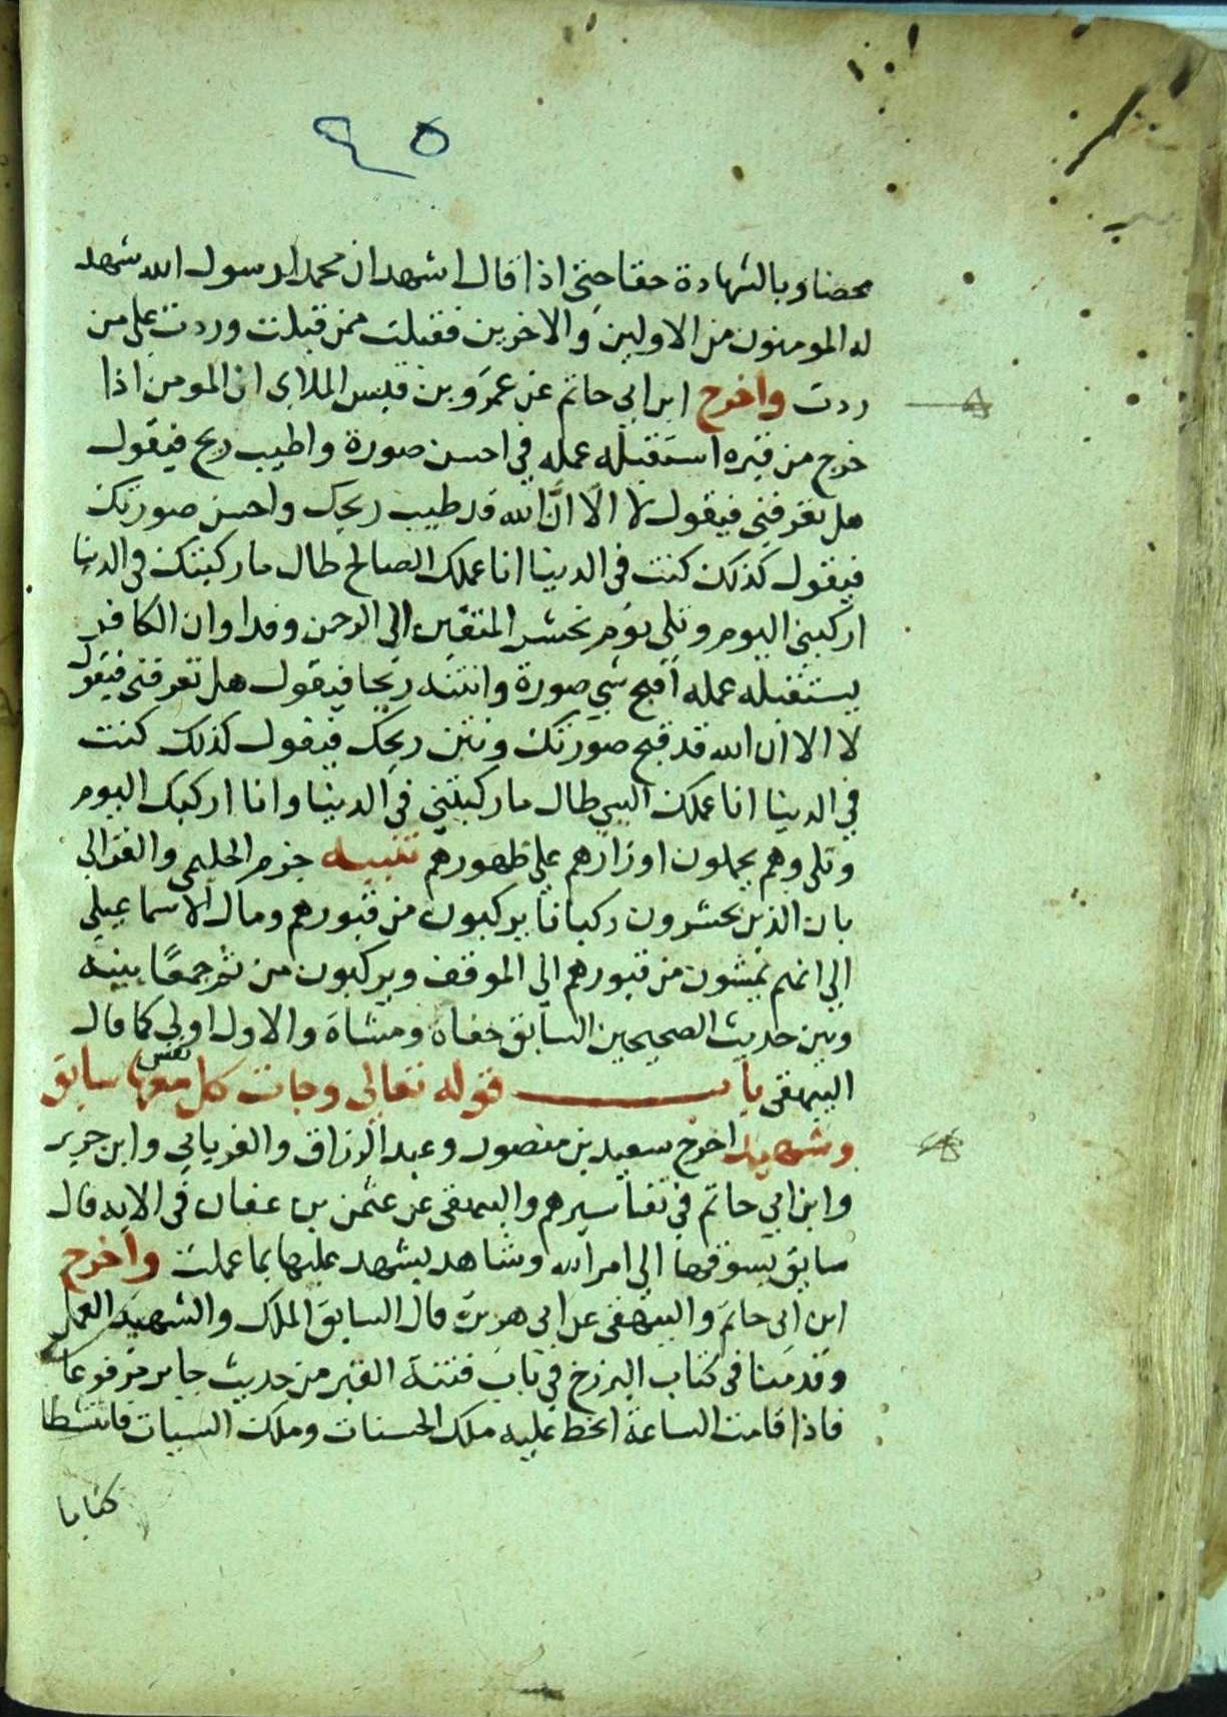 ٩٥
محضا وبالشهادة حقا حتى اذا قال اشهد ان محمدا رسول الله شهد
له المومنون من الاولين والاخرين فقبلت ممن قبلت وردت على من
ردت واخرج ابن ابي حاتم عن عمرو بن قيس الملاي ان المومن اذا
خرج من قبره استقبله عمله في احسن صورة واطيب ريح فيقول
هل تعرفني فيقول لا الا ان الله قد طيب ريحك واحسن صورتك
فيقول كذلك كنت في الدنيا انا عملك الصالح طال ما ركبتك في الدنيا
اركبني اليوم وتلى يوم نحشر المتقين الى الرحمن وفدا وان الكافر
يستقبله عمله اقبح شي صورة وانتنه ريحا فيقول هل تعرفني فيقول
لا الا ان الله قد قبح صورتك ونتن ريحك فيقول كذلك كنت
في الدنيا انا عملك السي طال ما ركبتني في الدنيا وانا اركبك اليوم
وتلى وهم يحملون اوزارهم على ظهورهم تنبيه جزم الحليمي والغزالي
بان الذين يحشرون ركبانا يركبون من قبورهم ومال الاسماعيلي
الى انهم يمشون من قبورهم الى الموقف ويركبون من ثم جمعا بينه
وبين حديث الصحيحين السابق حفاة ومشاة والاول اولى كما قال
البيهقي باب قوله تعالى وجات كل نفس معها سابق
وشهيد اخرج سعيد بن منصور وعبد الرزاق والفريابي وابن جرير
وابن ابي حاتم في تفاسيرهم والبيهقي عن عثمن بن عفان في الايه قال
سابق يسوقها الى امر الله وشاهد يشهد عليها بما عملت واخرج
ابن ابى حاتم والبيهقى عن ابي هريرة قال السابق الملك والشهيد العمل
وقدمنا في كتاب البرزخ في باب فتنة القبر من حديث جابر مرفوعا
فاذا قامت الساعة انحط عليه ملك الحسنات وملك السيات فانتشطا
كتابا